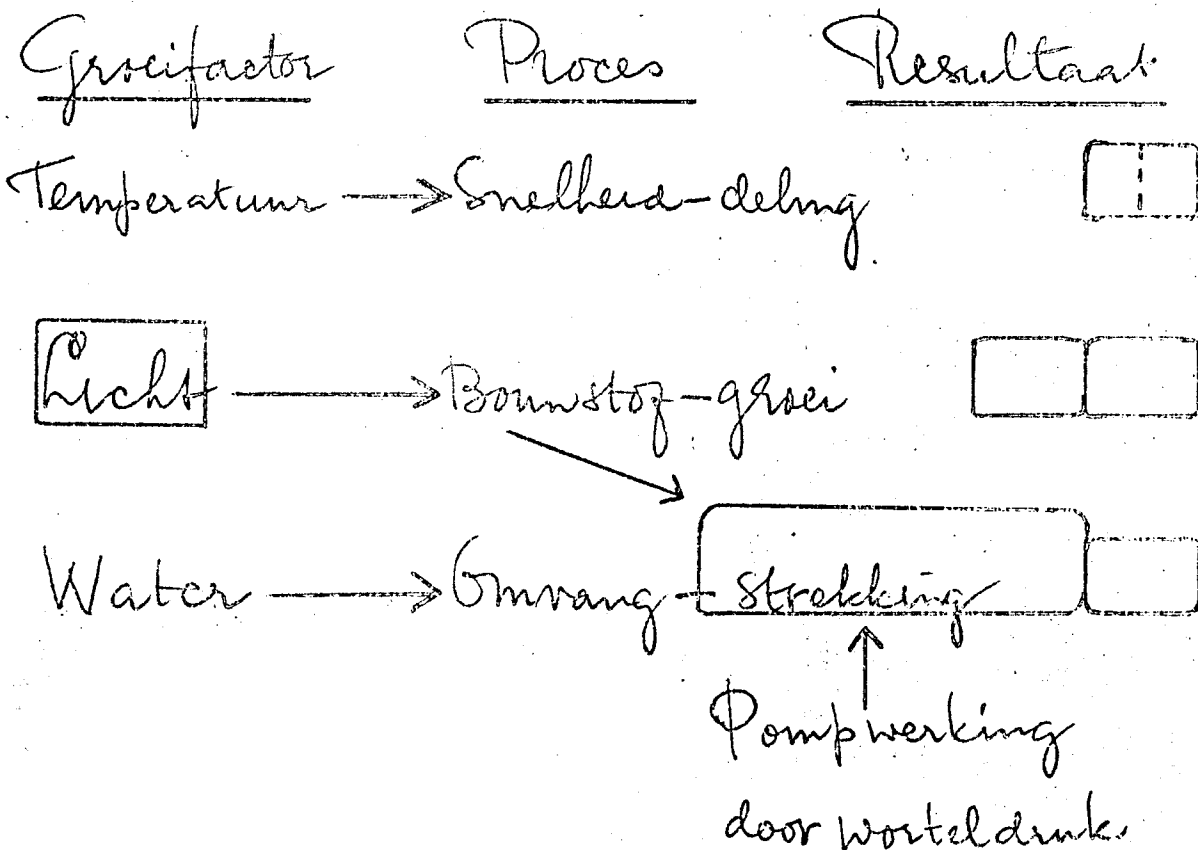 Groeifactor Proces Resultaat
Temperatuur → Snelheid - deling
Licht → Bouwstof - groei
Water → Omvang - strekking
Pompwerking
door worteldruk.